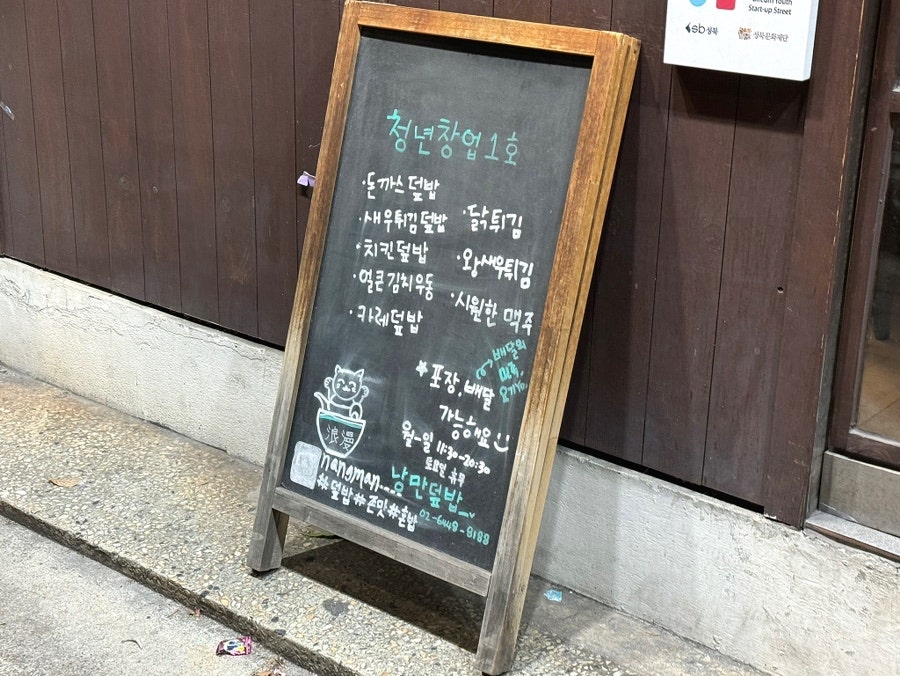 Start-up Street
sb 성북
성북문화재단
청년창업1호
·돈까스덮밥
·새우튀김덮밥
·치킨덮밥
·얼큰김치우동
·카레덮밥
·닭튀김
·왕새우튀김
·시원한 맥주
배달의
민족,
요기요.
*포장,배달
가능해요
월-일 11:30-20:30
토요일 휴무
浪漫
nangman....낭만덮밥
#덮밥#존맛#혼밥
02-6448-8188